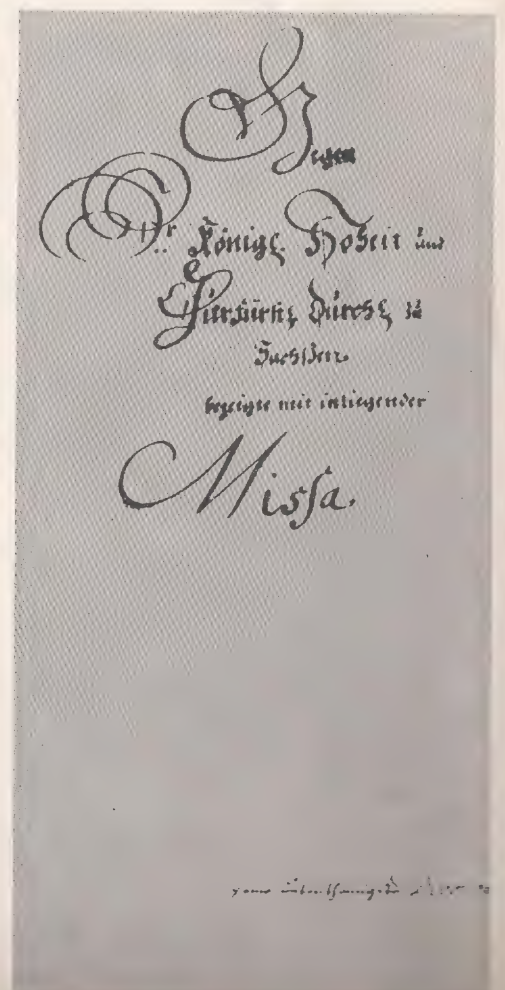 Gegen
Sr. Königl. Hoheit und
Churfürstl. Durchl. zu
Sachßen.
bezeigte mit inliegender
Missa.